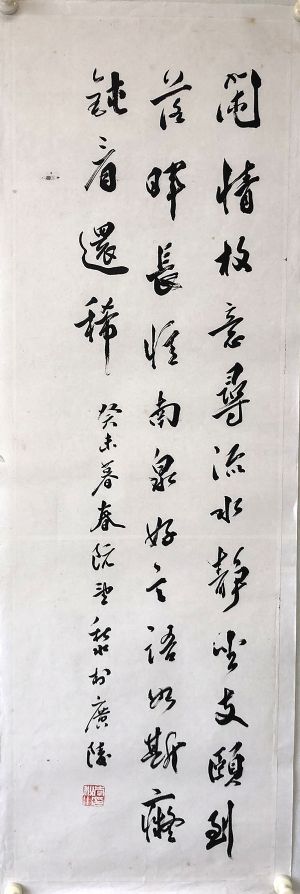 閒情放意尋流水靜坐支頤到
落暉長憶南泉好言語如斯癡
鈍者還稀
癸未暮春阮於廣陵